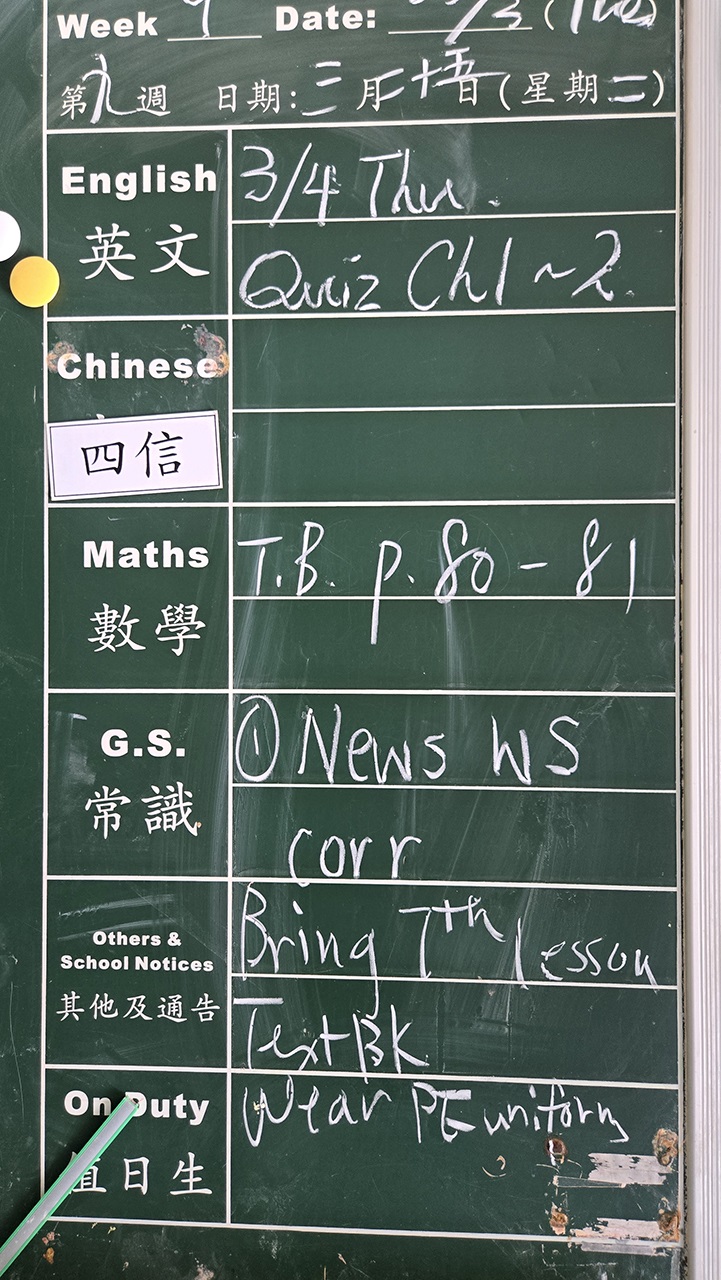 Week 9 Date: 25/3 (Tue)
第九週 日期:三月二十五日(星期二)
English 3/4 Thu.
英文 Quiz Ch1~2.
Chinese
四信
Maths T.B. p.80-81
數學
G.S. ① News WS
常識 corr
Others & Bring 7th lesson
School Notices
其他及通告 Text BK
On Duty Wear PE uniform
值日生